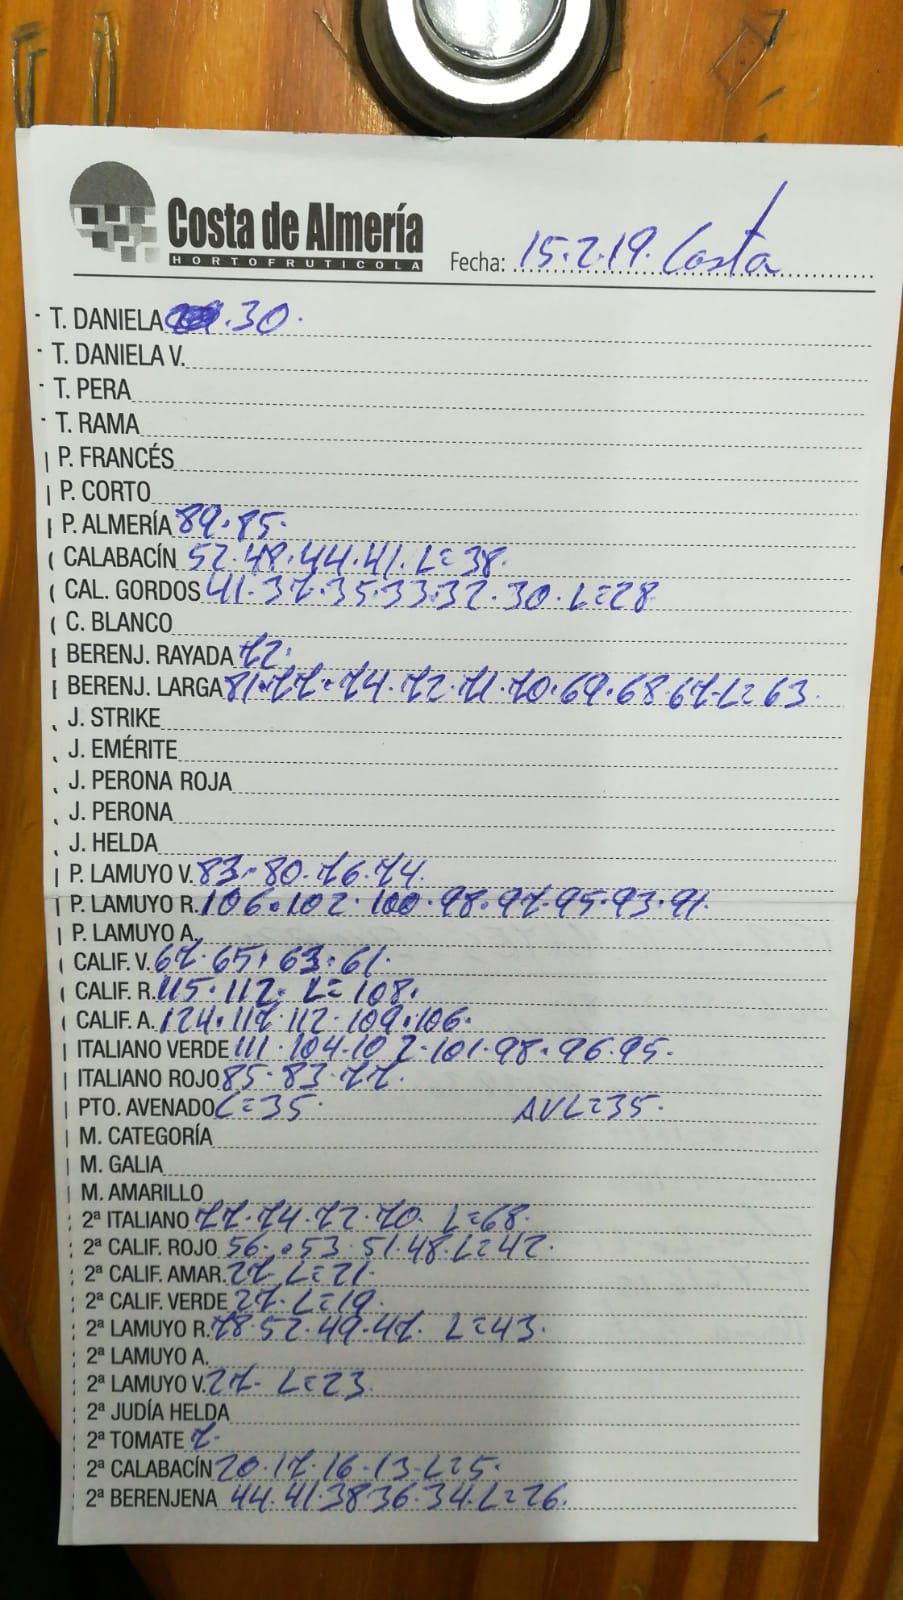 Costa de Almería
HORTOFRUTICOLA
Fecha: 15.2.19. Costa
T. DANIELA .30.
T. DANIELA V.
T. PERA
T. RAMA
P. FRANCÉS
P. CORTO
P. ALMERÍA 89.85.
CALABACÍN 52.48.44.41. L=38.
CAL. GORDOS 41.37.35.33.32.30. L=28
C. BLANCO
BERENJ. RAYADA 72.
BERENJ. LARGA 81.77.74.72.71.70.69.68.67.L=63.
J. STRIKE
J. EMÉRITE
J. PERONA ROJA
J. PERONA
J. HELDA
P. LAMUYO V. 83.80.76.74.
P. LAMUYO R. 106.102.100.98.97.95.93.91.
P. LAMUYO A.
CALIF. V. 67.65.63.61.
CALIF. R. 115.112. L=108.
CALIF. A. 124.117.112.109.106.
ITALIANO VERDE 111.104.102.101.98.96.95.
ITALIANO ROJO 85.83.77.
PTO. AVENADO L=35. AVL=35.
M. CATEGORÍA
M. GALIA
M. AMARILLO
2ª ITALIANO 77.74.72.70. L=68.
2ª CALIF. ROJO 56.53.51.48.L=42.
2ª CALIF. AMAR. 27. L=21.
2ª CALIF. VERDE 27. L=19.
2ª LAMUYO R. 78.52.49.47. L=43.
2ª LAMUYO A.
2ª LAMUYO V. 27. L=23
2ª JUDÍA HELDA
2ª TOMATE 7.
2ª CALABACÍN 20.17.16.13.L=5.
2ª BERENJENA 44.41.38 36.34.L=26.